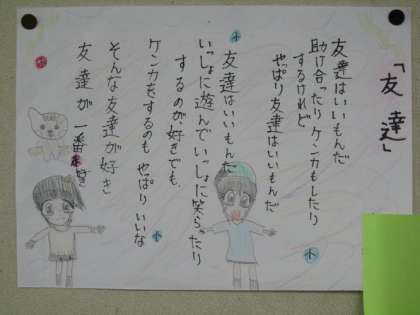 「友達」
友達はいいもんだ
助け合ったりケンカもしたり
するけれど
やっぱり友達はいいもんだ
友達はいいもんだ
いっしょに遊んでいっしょに笑らったり
するのが好きでも、
ケンカをするのも やっぱりいいな
そんな友達が好き
友達が一番好き